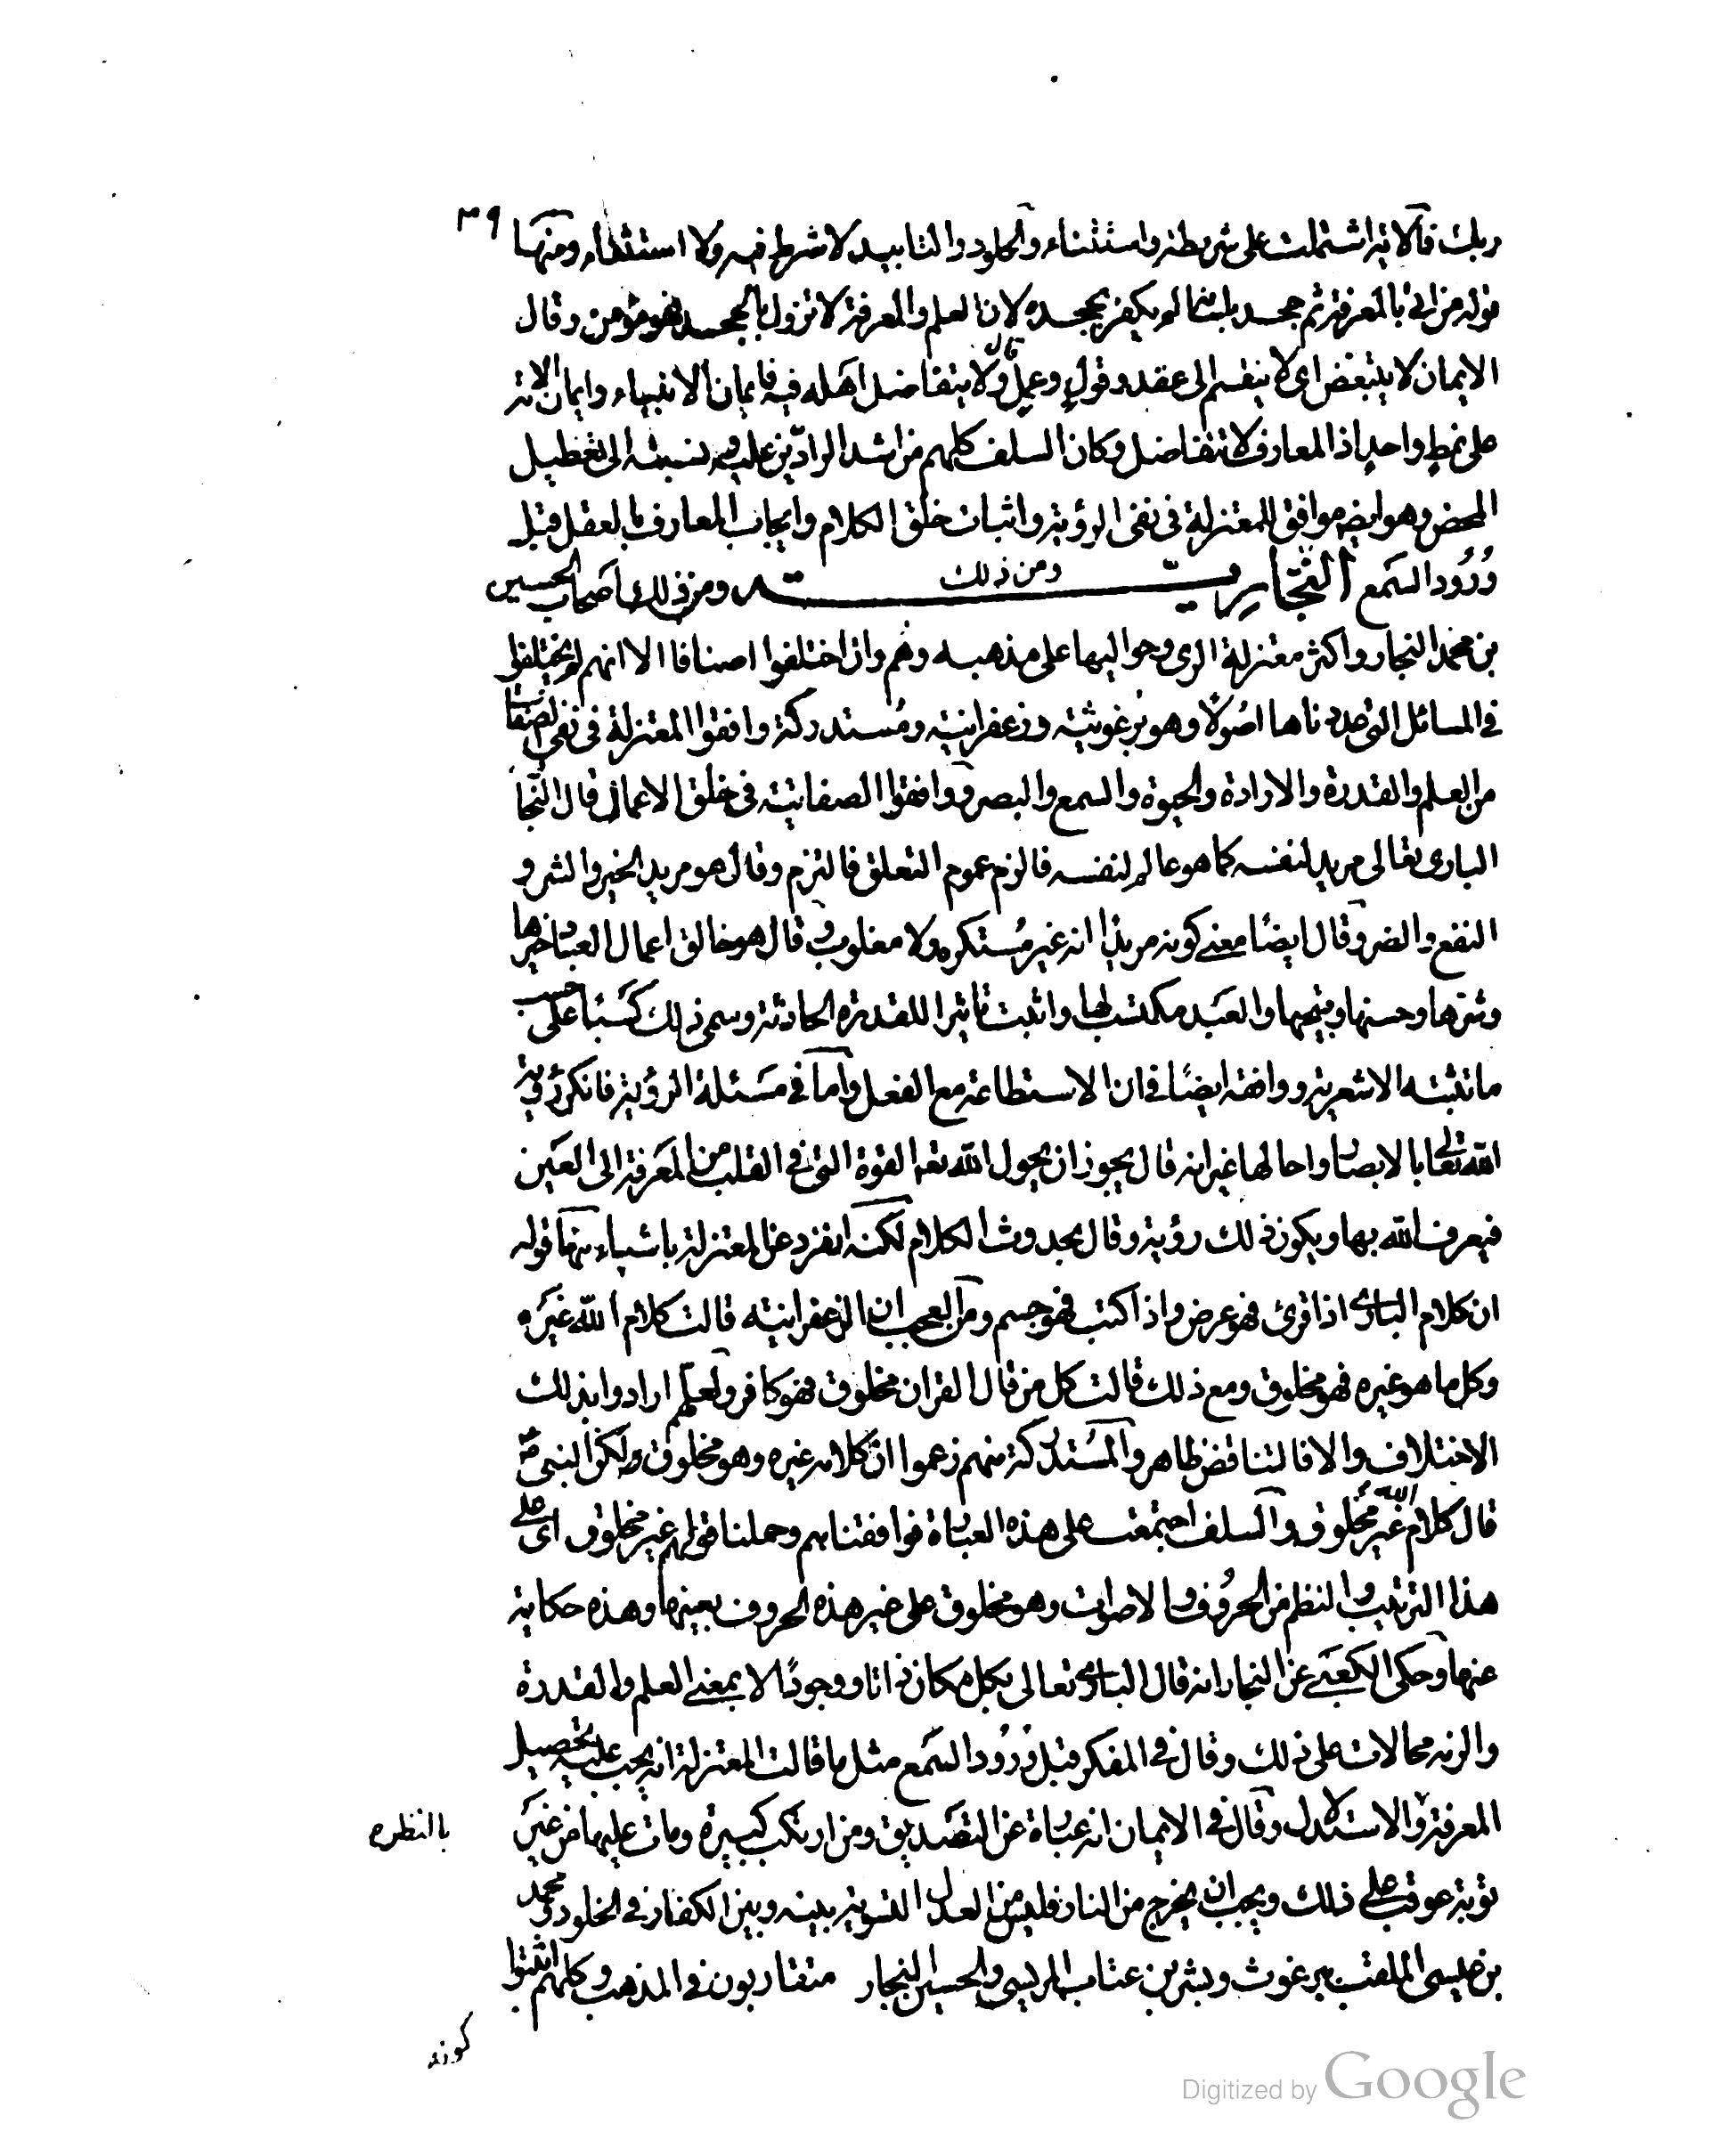 ٣٩
ربك فالآية اشتملت على شريطة واستثناء والخلود والتابيد لا شرط فيه ولا استثناء ومنها
قوله من اتى بالمعرفة ثم جحد بلسانه لم يكفر بجحده لان العلم والمعرفة لا تزول بالجحد فهو مؤمن وقال
الايمان لا يتبعض اى لا ينقسم الى عقد وقول وعمل قال ولا يتفاضل اهله فيه فايمان الانبياء وايمان الامة
على نمط واحد اذ المعارف لا تتفاضل وكان السلف كلهم من اشد الرادّين عليه ونسبته الى التعطيل
المحض وهو ايضا موافق للمعتزلة فى نفى الرؤية واثبات خلق الكلام وايجاب المعارف بالعقل قبل
وُرُود السمع النجّارِيّة ومن ذلك ومن ذلك اصحاب الحسين
بن محمد النجار واكثر معتزلة الرى وحواليها على مذهبه وهم وان اختلفوا اصنافا الا انهم لم يختلفوا
فى المسائل التى عددناها اصُولًا وهو برغوثية وزعفرانية ومُستدركة وافقوا المعتزلة فى نفى الصفات
من العلم والقدرة والارادة والحيوة والسمع والبصر ووافقوا الصفاتية فى خلق الاعمال قال النجّار
البارى تعالى مريد لنفسه كما هو عالم لنفسه فالزم عموم التعلق فالتزم وقال هو مريد الخير والشر و
النفع والضر وقال ايضًا معنى كونه مريدًا انه غير مُستكره ولا مغلوب وقال هو خالق اعمال العباد خيرها
وشرها وحسنها وقبيحها والعبد مكتسب لها واثبت تاثيرا للقدرة الحادثة وسمى ذلك كسبًا على حسب
ما تثبته الاشعرية ووافقه ايضًا فى ان الاستطاعة مع الفعل واما فى مسئلة الرؤية فانكر رؤية
الله تعالى بالابصار واحالها غير انه قال يجوز ان يحول الله تعالى القوة التى فى القلب من المعرفة الى العين
فيعرف الله بها ويكون ذلك رؤية وقال بحدوث الكلام لكنه انفرد عن المعتزلة باشياء منها قوله
ان كلام البارى اذا قرئ فهو عرض واذا كتب فهو جسم ومن العجب ان الزعفرانية قالت كلام الله غيره
وكل ما هو غيره فهو مخلوق ومع ذلك قالت كل من قال القران مخلوق فهو كافر ولعلهم ارادوا بذلك
الاختلاف والا فالتناقض ظاهر والمستدركة منهم زعموا ان كلامه غيره وهو مخلوق ولكن النبى ص
قال كلام الله غير مخلوق والسلف اجتمعت على هذه العبارة فوافقناهم وحملنا قولهم غير مخلوق اى على
هذا الترتيب والنظم من الحرُوف والاصوات وهو مخلوق على غير هذه الحروف بعينها وهذه حكاية
عنها وحكى الكعبى عن النجار انه قال البارى تعالى بكل مكان ذاتا ووجودًا لا بمعنى العلم والقدرة
والزمه محالات على ذلك وقال فى المفكر قبل وُرُود السمع مثل ما قالت المعتزلة انه يجب عليه تحصيل
المعرفة والاستدلال وقال فى الايمان انه عبارة عن التصديق ومن ارتكب كبيرة ومات عليها من غير
بالنظر
توبة عوقب على ذلك ويجب ان يخرج من النار فليس من العدل التسوية بينه وبين الكفار فى الخلود ومحمد
بن عيسى الملقب ببرغوث وبشر بن عتاب المريسى والحسين النجار متقاربون فى المذهب وكلهم اثبتوا
كونه
Digitized by Google